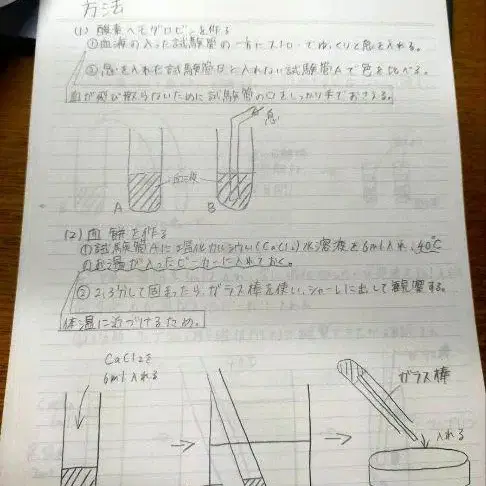 方法
(1) 酸素ヘモグロビンを作る
①血液の入った試験管の一方にストローでゆっくりと息を入れる。
②息を入れた試験管Bと入れない試験管Aで色を比べる。
血が飛び散らないために試験管の口をしっかり手でおさえる。
息
血液
A
B
(2) 血餅を作る
①試験管Aに塩化カルシウム(CaCl₂)水溶液を6ml入れ、40℃
のお湯が入ったビーカーに入れておく。
②2,3分して固まったら、ガラス棒を使い、シャーレに出して観察する。
体温に近づけるため。
CaCl2を
6ml入れる
ガラス棒
入れる